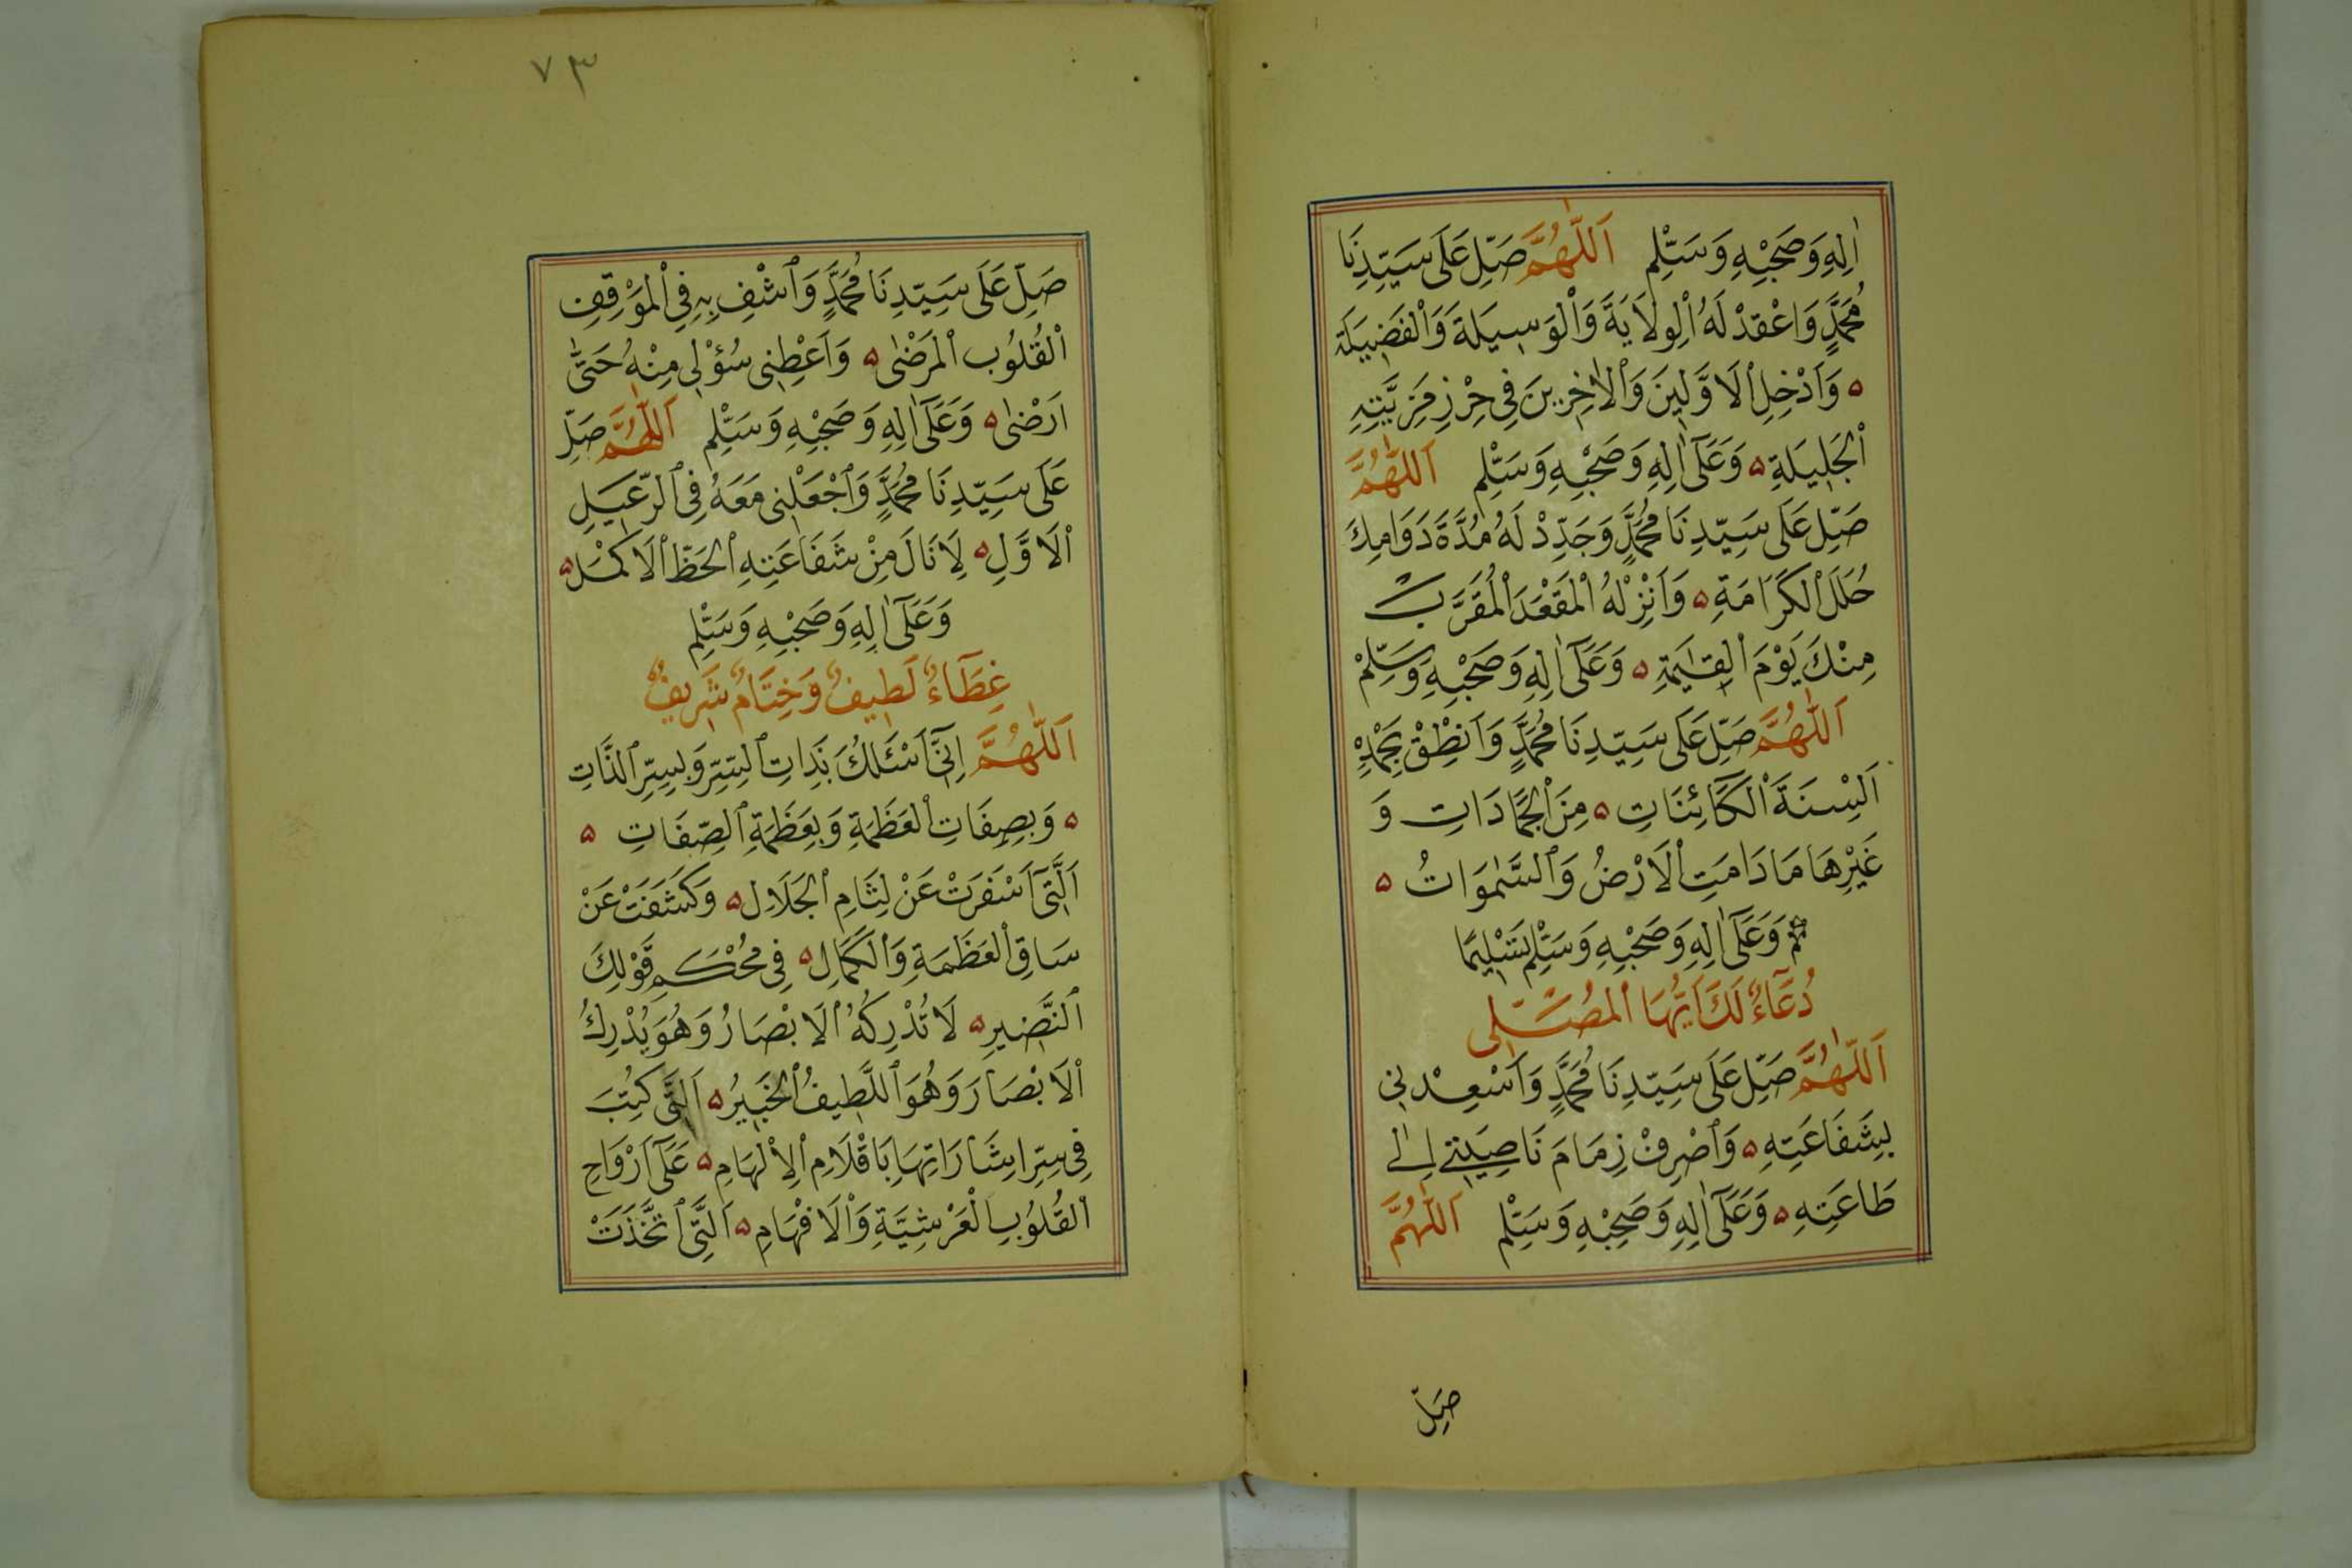 اٰلِهِ وَصَحْبِهِ وَسَلِّمْ اَللّٰهُمَّ صَلِّ عَلَى سَيِّدِنَا
مُحَمَّدٍ وَاعْقِدْ لَهُ الْوِلَايَةَ وَالْوَسِيلَةَ وَالْفَضِيلَةَ
ه وَاَدْخِلِ الْاَوَّلِينَ وَالْاٰخِرِينَ فِي حِرْزِ مَزِيَّتِهِ
الْجَلِيلَةِ ه وَعَلَىٓ اٰلِهِ وَصَحْبِهِ وَسَلِّمْ اَللّٰهُمَّ
صَلِّ عَلَى سَيِّدِنَا مُحَمَّدٍ وَجَدِّدْ لَهُ مُدَّةَ دَوَامِكَ
حُلَلَ الْكَرَامَةِ ه وَاَنْزِلْهُ الْمَقْعَدَ الْمُقَرَّبَ
مِنْكَ يَوْمَ الْقِيٰمَةِ ه وَعَلَىٓ اٰلِهِ وَصَحْبِهِ وَسَلِّمْ
اَللّٰهُمَّ صَلِّ عَلَى سَيِّدِنَا مُحَمَّدٍ وَاَنْطِقْ بِحَمْدِهِ
اَلْسِنَةَ الْكَآئِنَاتِ ه مِنَ الْجَمَادَاتِ وَ
غَيْرِهَا مَا دَامَتِ الْاَرْضُ وَالسَّمٰوَاتُ ه
وَعَلَىٓ اٰلِهِ وَصَحْبِهِ وَسَلِّمْ تَسْلِيمًا
دُعَآءٌ لَكَ اَيُّهَا الْمُصَلِّى
اَللّٰهُمَّ صَلِّ عَلَى سَيِّدِنَا مُحَمَّدٍ وَاَسْعِدْنِى
بِشَفَاعَتِهِ ه وَاصْرِفْ زِمَامَ نَاصِيَتِى اِلٰى
طَاعَتِهِ ه وَعَلَىٓ اٰلِهِ وَصَحْبِهِ وَسَلِّمْ اَللّٰهُمَّ
صَلِّ
٧٣
صَلِّ عَلَى سَيِّدِنَا مُحَمَّدٍ وَاشْفِ بِهِ فِى الْمَوْقِفِ
الْقُلُوبَ الْمَرْضٰى ه وَاَعْطِنِى سُؤْلِى مِنْهُ حَتّٰى
اَرْضٰى ه وَعَلَىٓ اٰلِهِ وَصَحْبِهِ وَسَلِّمْ اَللّٰهُمَّ صَلِّ
عَلَى سَيِّدِنَا مُحَمَّدٍ وَاجْعَلْنِى مَعَهُ فِى الرَّعِيلِ
الْاَوَّلِ ه لِاَنَالَ مِنْ شَفَاعَتِهِ الْحَظَّ الْاَكْمَلَ ه
وَعَلَىٓ اٰلِهِ وَصَحْبِهِ وَسَلِّمْ
غِطَآءٌ لَطِيفٌ وَخِتَامٌ شَرِيفٌ
اَللّٰهُمَّ اِنِّىٓ اَسْئَلُكَ بِذَاتِ السِّرِّ وَبِسِرِّ الذَّاتِ
ه وَبِصِفَاتِ الْعَظَمَةِ وَبِعَظَمَةِ الصِّفَاتِ ه
اَلَّتِىٓ اَسْفَرَتْ عَنْ لِثَامِ الْجَلَالِ ه وَكَشَفَتْ عَنْ
سَاقِ الْعَظَمَةِ وَالْكَمَالِ ه فِى مُحْكَمِ قَوْلِكَ
النَّضِيرِ ه لَا تُدْرِكُهُ الْاَبْصَارُ وَهُوَ يُدْرِكُ
الْاَبْصَارَ وَهُوَ اللَّطِيفُ الْخَبِيرُ ه اَلَّتِى كُتِبَ
فِى سِرِّ اِشَارَاتِهَا بِاَقْلَامِ الْاِلْهَامِ ه عَلَىٓ اَرْوَاحِ
الْقُلُوبِ الْعَرْشِيَّةِ وَالْاَفْهَامِ ه اَلَّتِى اتَّخَذَتْ